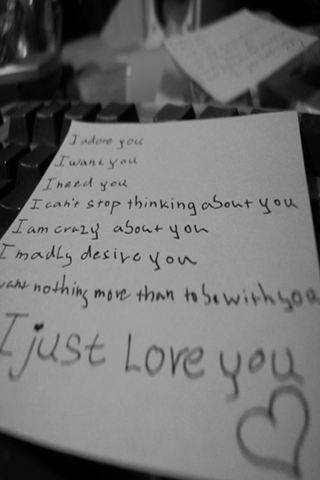 I adore you
I want you
I need you
I can't stop thinking about you
I am crazy about you
I madly desire you
want nothing more than to be with you
I just Love you